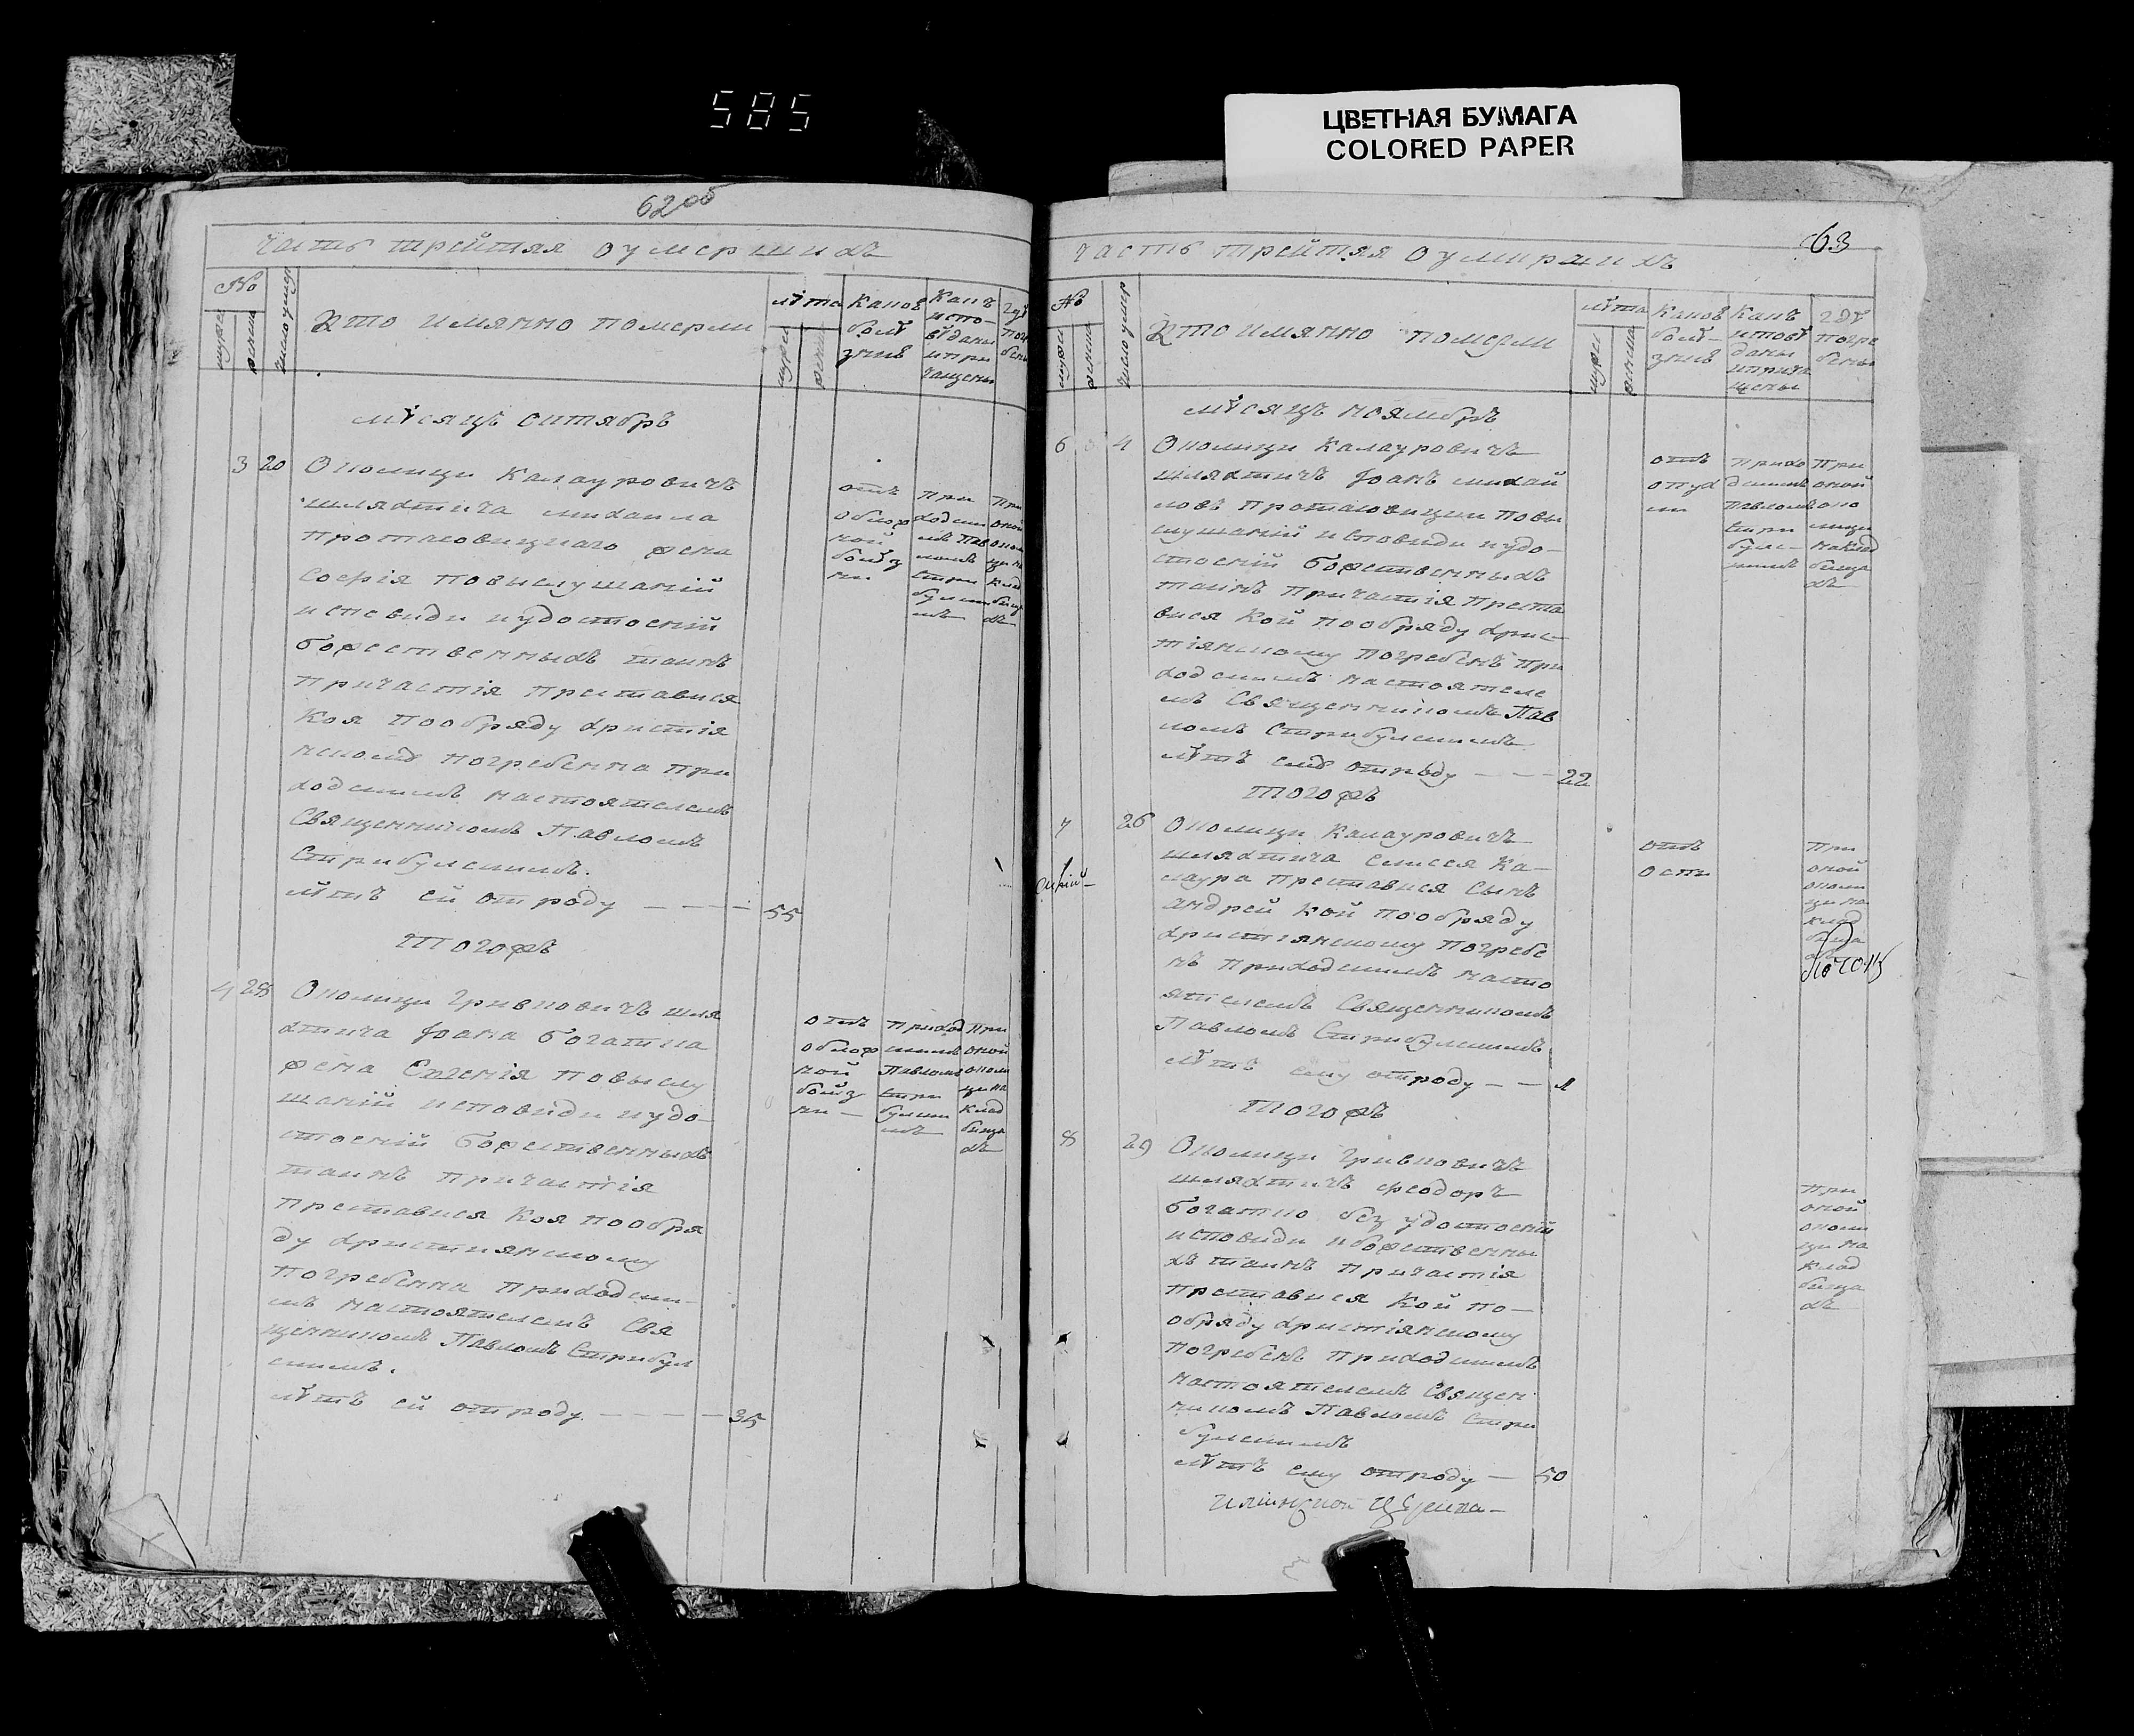 585
ЦВЕТНАЯ БУМАГА
COLORED PAPER
62об
часть трейтяя оумершихъ
№
мужеск
женска
число умер
Кто имянно померли
лѣта
мужеск
женска
Какою
болѣ
знию
Какъ
испо-
вѣданы
и при
чащены
гдѣ
погр
бены
мѣсяцъ октябръ
3 20 Околицы Калауровичъ
шляхтича михаила
протасовицкаго жена
софія повислушаній
исповиди иудостоеній
божественныхъ таинъ
причастія преставися
коя пообряду христія
нскомѹ погребенна при
ходскимъ настоятелемъ
священникомъ Павломъ
Стрибулскимъ.
лѣтъ ей отроду — — — 55
отъ
облож
ной
болѣз
ни
при
ходски
мъ Пав
ломъ
Стри
булски
мъ
при
оной
окол
ци на
клад
бищ
хъ
Тогожъ
4 28 Околицы Гривковичъ шля
хтича Іоана богатка
жена Евгенія повыслу
шаній исповиди иудо-
стоеній божественныхъ
таинъ причастія
преставися коя пообря
ду християнскому
погребенна приходски-
мъ настоятелемъ свя
щенникомъ Павломъ Стрибул
скимъ.
лѣтъ ей отроду. — — — — 35
отъ
облож
ной
болѣз
ни —
приход
скимъ
Павломъ
Стри
булски
мъ
при
оной
околи
ци на
клад
бища
хъ
63
часть трейтяя оумиршихъ
№
мужеск
женска
число умер
Кто имянно померли
лѣта
мужеск
женска
Какою
болѣ-
знию
Какъ
исповѣ
даны
и прича
щены
гдѣ
погре
бены
мѣсяцъ ноямбръ
6 4 Околицы Калауровичъ
шляхтичъ Іоанъ михай
ловъ протасовицки повы
слушаній исповиди иудо-
стоеній божественныхъ
таинъ причастія преста
вися кой пообряду хрис-
тіянскому погребенъ при
ходскимъ настоятеле
мъ священникомъ Пав
ломъ Стрибулскимъ
лѣтъ емѹ отроду — — — 22
отъ
опух
ли
прихо
дскимъ
Павломъ
Стри
булс-
кимъ
При
оной
око
лици
на клад
бища
хъ
Тогожъ
7 26 Околицы Калауровичъ
шляхтича елисея Ка-
лаура преставися сынъ
андрей кой пообряду
христіянскому погребе
нъ приходскимъ насто
ятелемъ священникомъ
Павломъ Стрибулскимъ
лѣтъ ему отроду — — 1
отъ
оспи
При
оной
околи
ци на
клад
бища
Тогожъ
8 29 Околицы Гривковичъ
шляхтичъ феодоръ
богатко без удостоеній
исповиди ибожественны
хъ таинъ причастія
преставися кой по-
обряду христіянскому
погребенъ приходскимъ
настоятелемъ священ
никомъ Павломъ Стри
булскимъ
лѣтъ ему отроду — 50
При
оной
околи
ци на
клад
бища
хъ